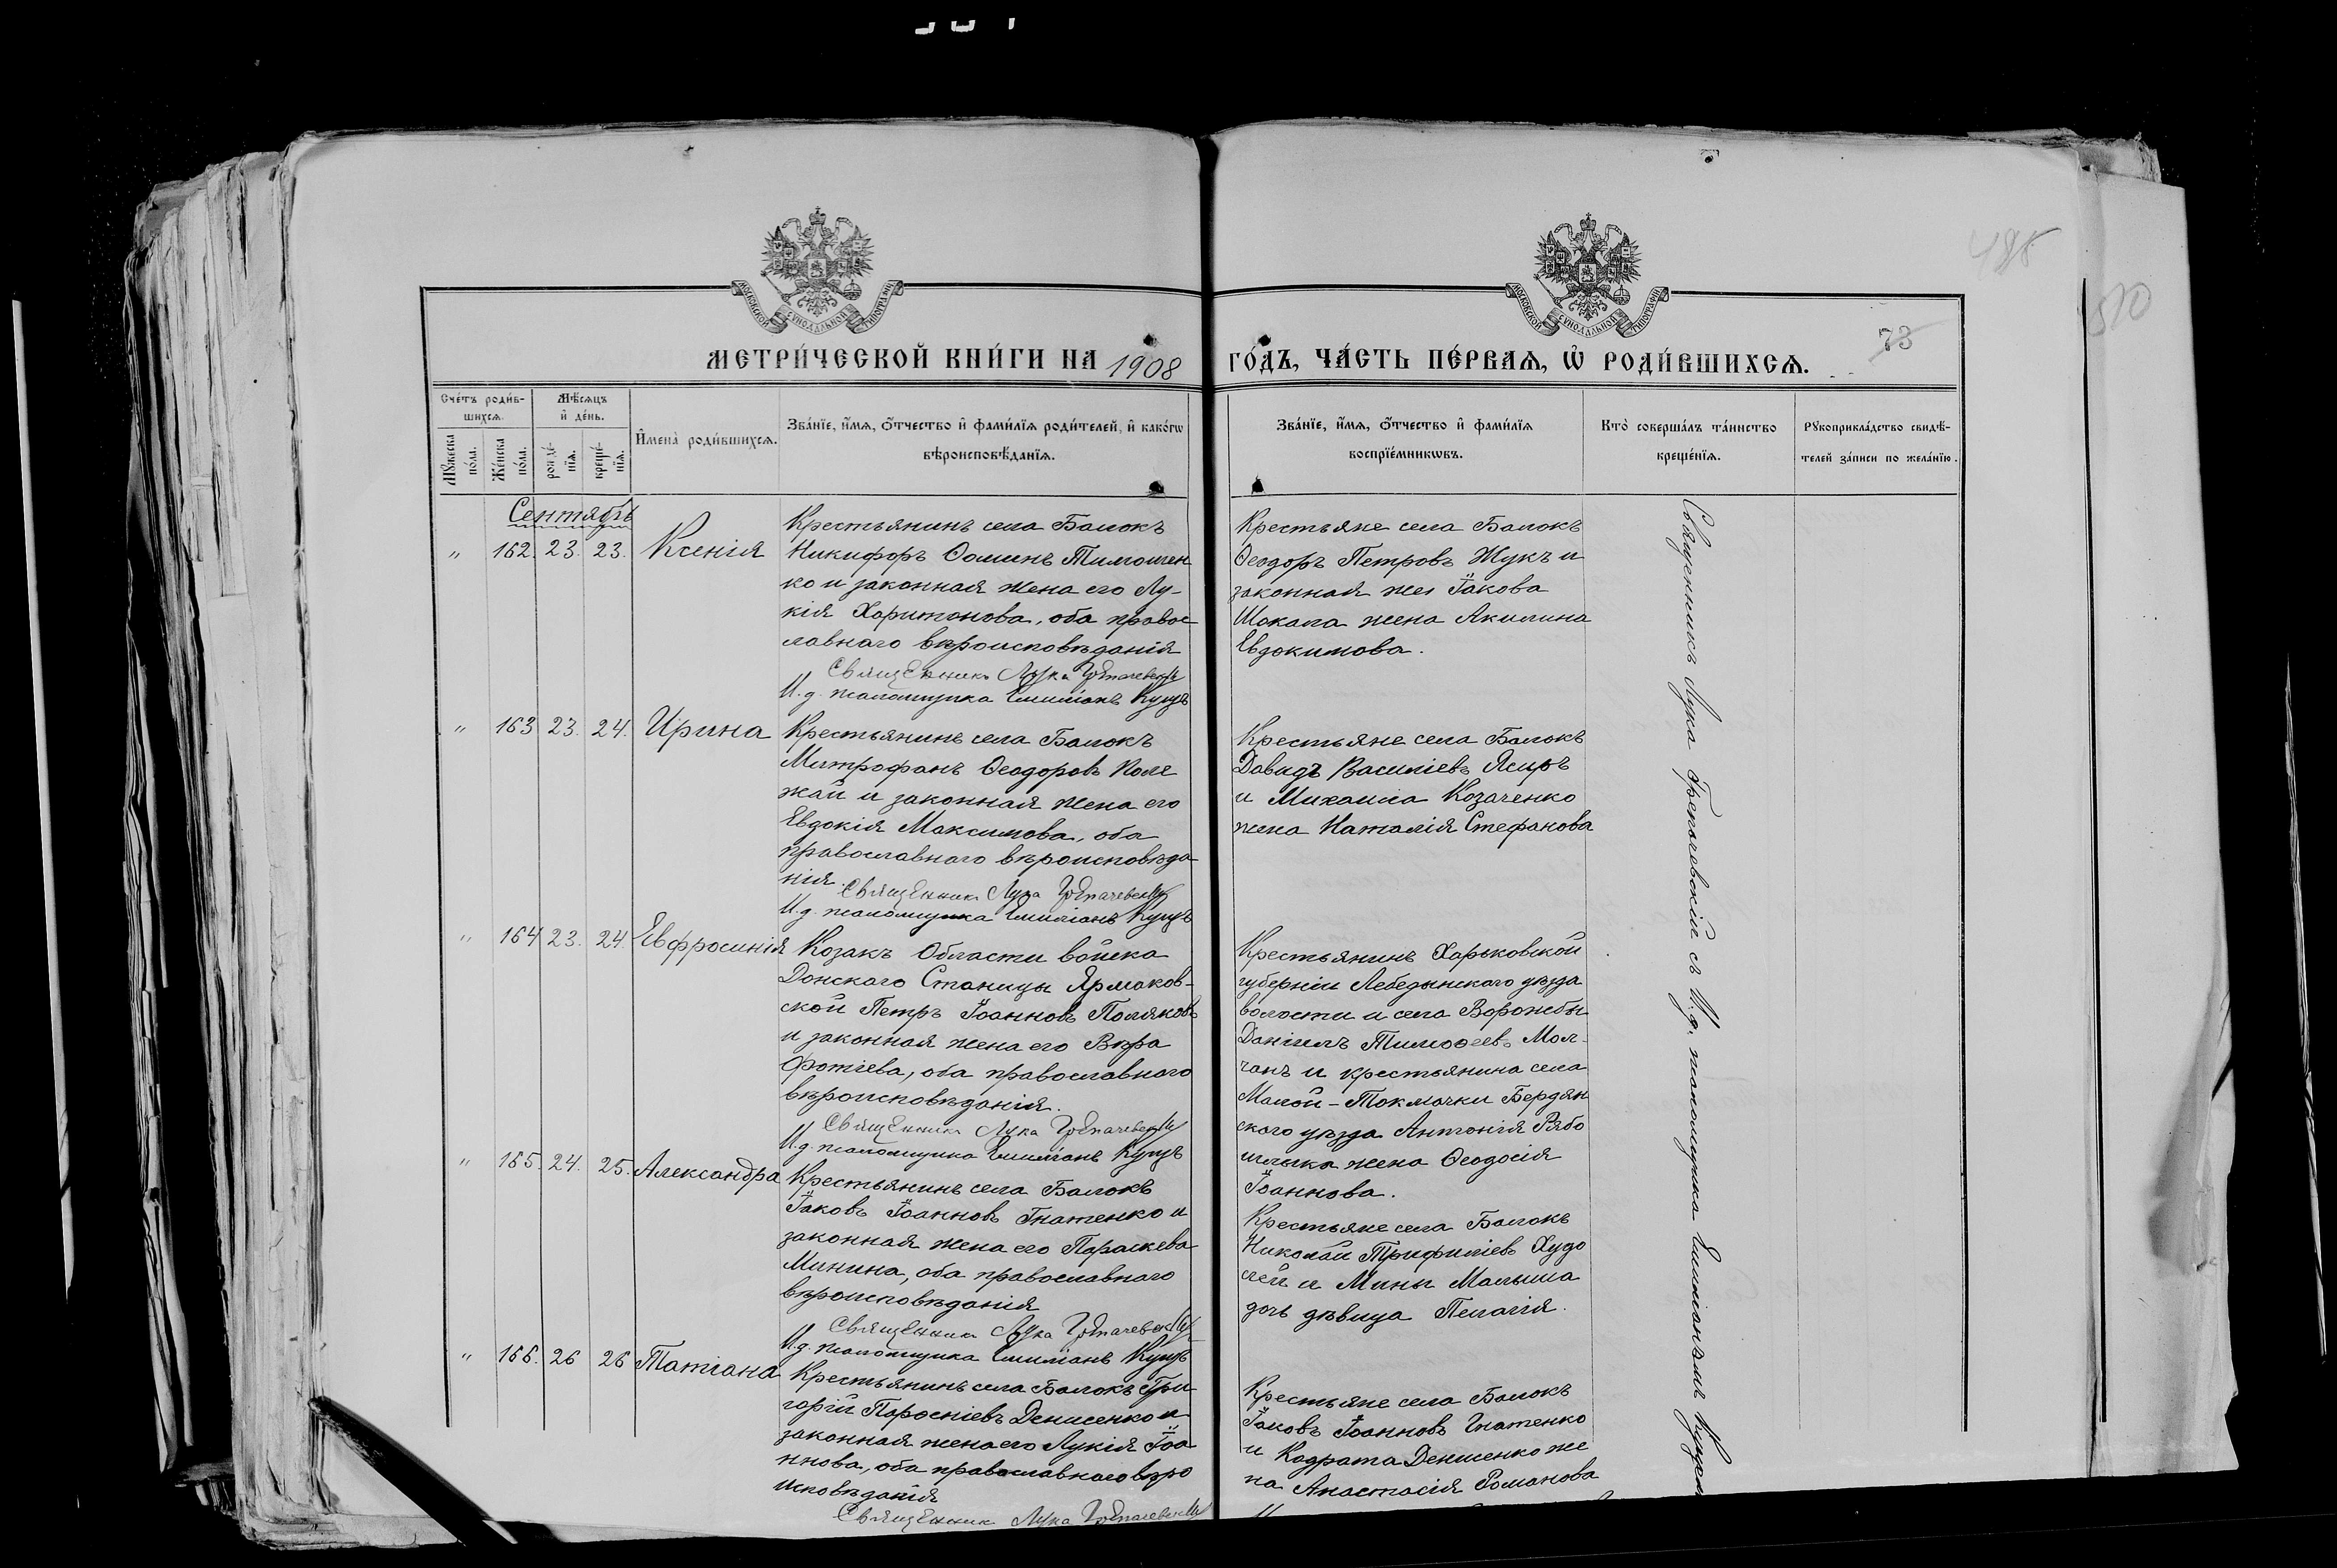 МОСКОВСКОЙ СѴНОДАЛЬНОЙ ТИПОГРАФІИ
МОСКОВСКОЙ СѴНОДАЛЬНОЙ ТИПОГРАФІИ
510
73
МЕТРИ́ЧЕСКОЙ КНИ́ГИ НА 1908 ГО́ДЪ, ЧА́СТЬ ПЕ́РВАѦ, Ѡ҆ РОДИ́ВШИХСѦ.
Сче́тъ роди́в-
шихсѧ.
Мꙋ́жеска
по́ла.
Же́нска
по́ла.
Мѣ́сѧцъ
и҆ де́нь.
рожде́-
нїѧ.
креще́-
нїѧ.
И҆мена̀ роди́вшихсѧ.
Зва́нїе, и҆́мѧ, ѻ҆́тчество и҆ фами́лїѧ роди́телей, и҆ како́гѡ
вѣроисповѣ́данїѧ.
Зва́нїе, и҆́мѧ, ѻ҆́тчество и҆ фами́лїѧ
воспрїе́мникѡвъ.
Кто̀ соверша́лъ та́инство
креще́нїѧ.
Рꙋкоприкла́дство свидѣ́-
телей за́писи по жела́нїю.
Сентябрь
" 162. 23. 23. Ксенія
Крестьянинъ села Балокъ
Никифоръ Ѳоминъ Тимошен
ко и законная жена его Лу-
кія Харитонова, оба правос
лавнаго вѣроисповѣданія
Священникъ Лука
И.д. псаломщика Емиліанъ Куцъ
Крестьяне села Балокъ
Ѳеодоръ Петровъ Жукъ и
законная же Іакова
Шокала жена Акилина
Евдокимова.
" 163 23. 24. Ирина
Крестьянинъ села Балокъ
Митрофанъ Ѳеодоровъ Поле
жай и законная жена его
Евдокія Максимова, оба
православнаго вѣроисповѣда
нія.
Священникъ Лука
И.д. псаломщика Емиліанъ Куцъ
Крестьяне села Балокъ
Давидъ Василіевъ Ясиръ
и Михаила Козаченко
жена Наталія Стефанова
" 164 23. 24. Евфросинія
Козакъ Области войска
Донскаго Станицы Ярмаков-
ской Петръ Іоанновъ Поляковъ
и законная жена его Вѣра
Фотіева, оба православнаго
вѣроисповѣданія.
Священникъ Лука
И.д. псаломщика Емиліанъ Куцъ
Крестьянинъ Харьковской
губерніи Лебедынскаго уѣзда
волости и села Ворожбы
Даніилъ Тимоѳеевъ Мол-
чанъ и крестьянина села
Малой-Токмачки Бердян
скаго уѣзда Антонія Рябо
шлыка жена Ѳеодосія
Іоаннова.
" 165. 24. 25. Александра
Крестьянинъ села Балокъ
Іаковъ Іоанновъ Гнатенко и
законная жена его Параскева
Минина, оба православнаго
вѣроисповѣданія
Священникъ Лука
И.д. псаломщика Емиліанъ Куцъ
Крестьяне села Балокъ
Николай Трифиліевъ Худо
лей и Мины Малыша
дочь дѣвица Пелагія.
" 166. 26 26 Татіана
Крестьянинъ села Балокъ Гри
горій Пароеніевъ Денисенко и
законная жена его Лукія Іоа
ннова, оба православнаго вѣро
исповѣданія
Священникъ Лука
Крестьяне села Балокъ
Іаковъ Іоанновъ Гнатенко
и Кодрата Денисенко же
на Анастасія Романова
Священникъ Лука съ И.д. псаломщика Емиліаномъ